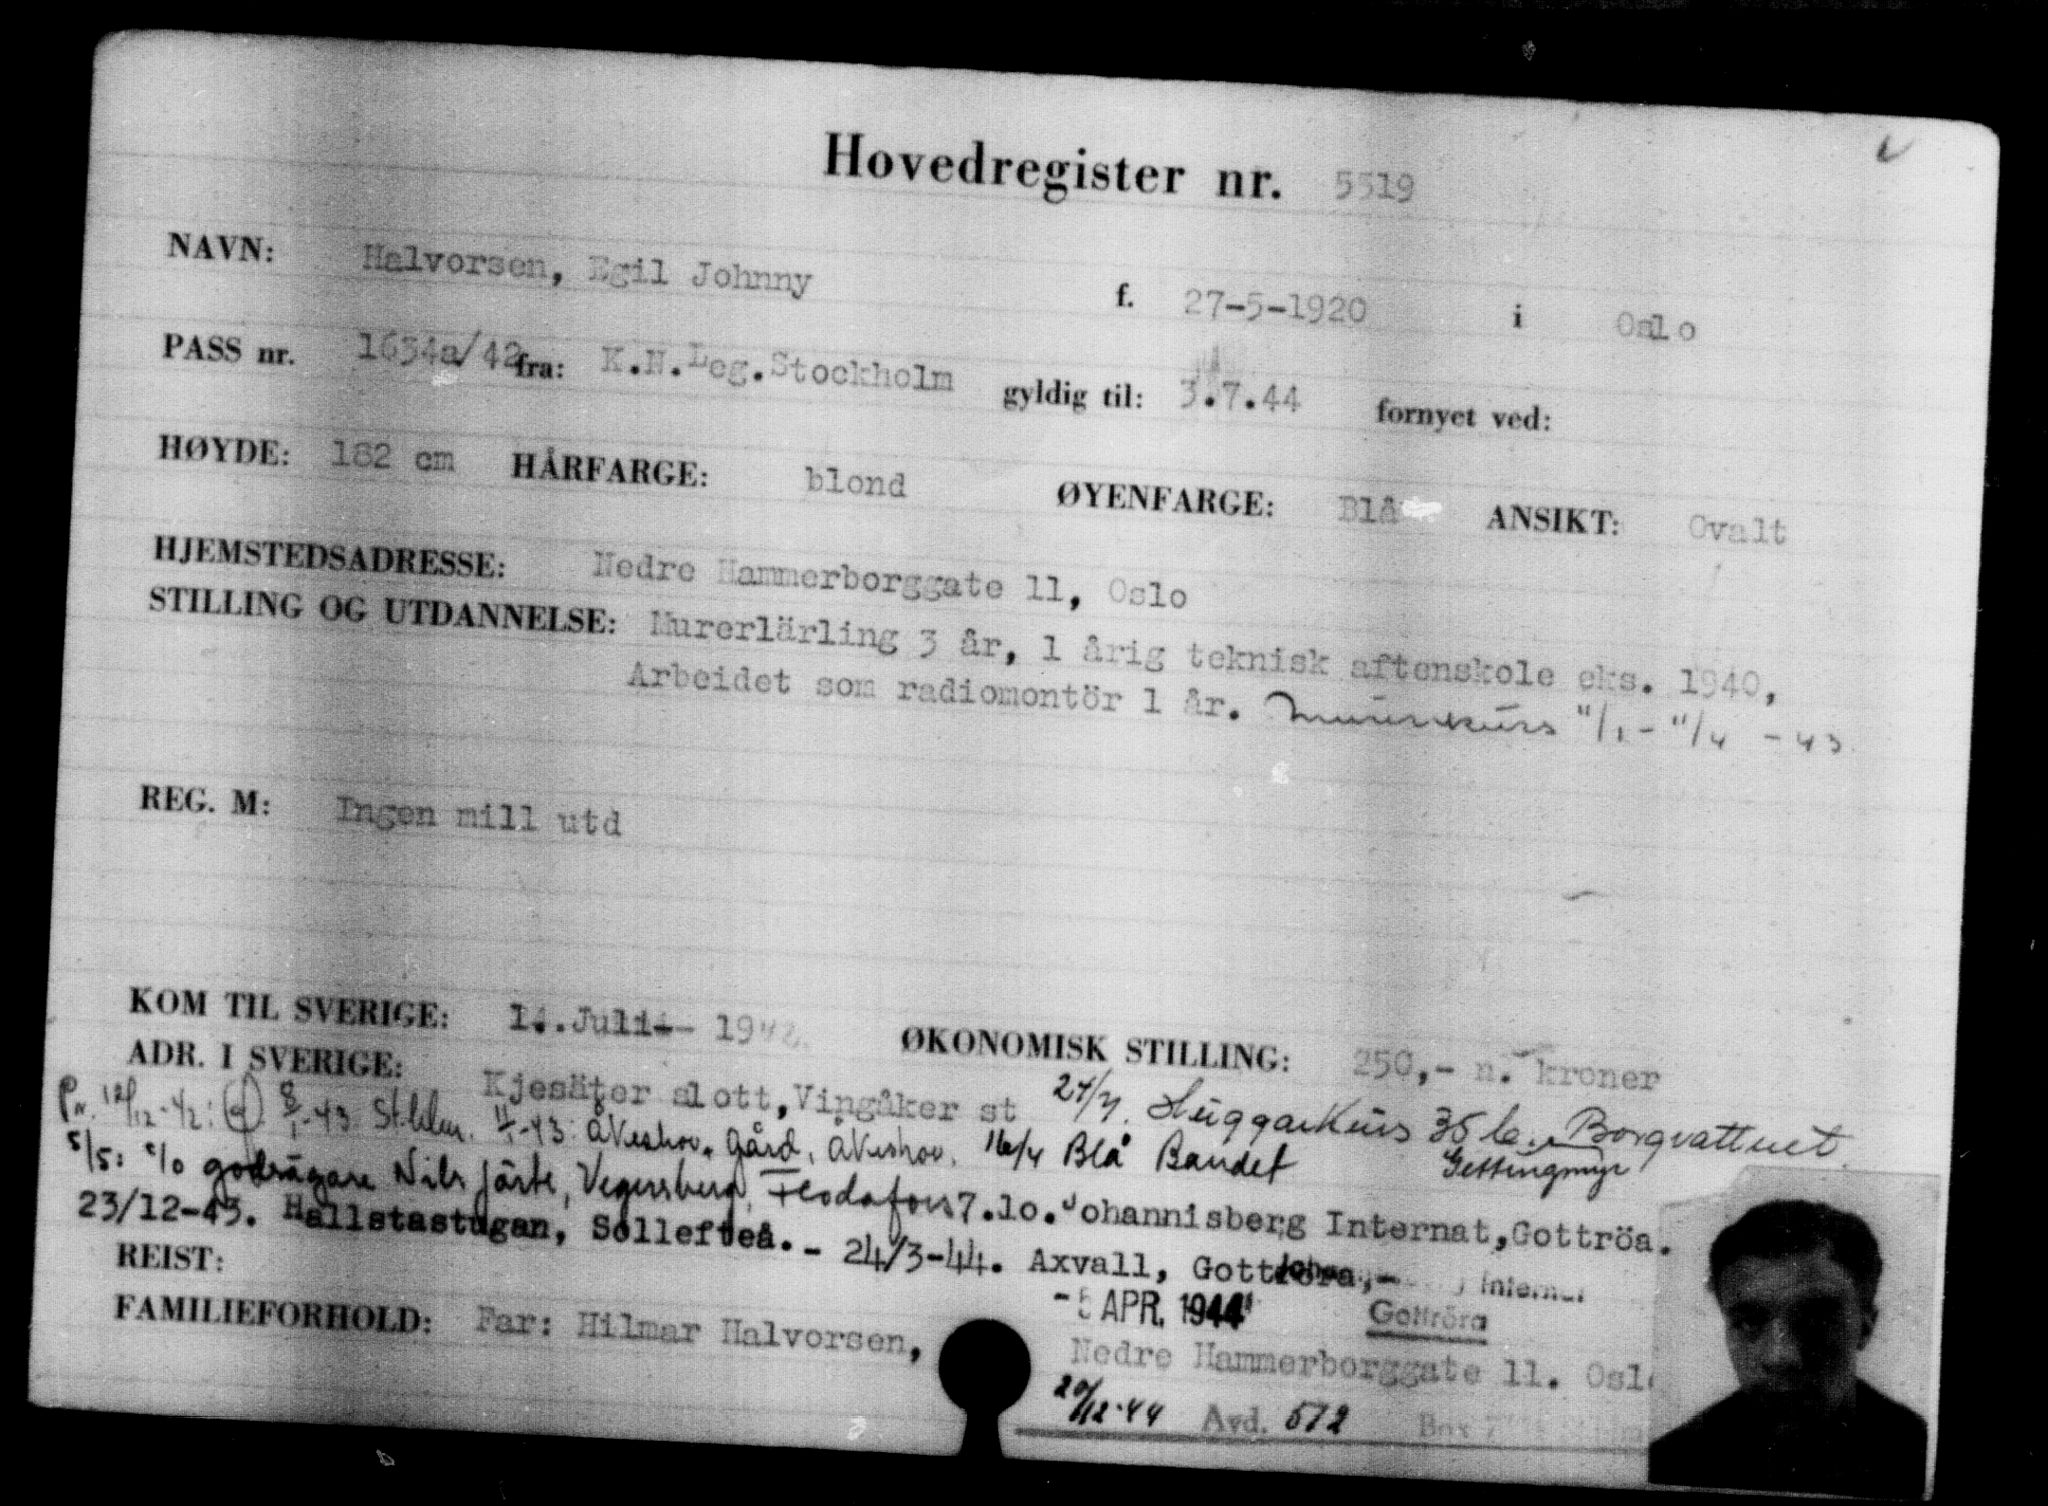 Hovedregister nr. 5519
NAVN: Halvorsen, Egil Johnny f. 27-5-1920 i Oslo
PASS nr. 1634a/42 fra: K.N.Leg.Stockholm gyldig til: 3.7.44 fornyet ved:
HØYDE: 182 cm HÅRFARGE: blond ØYENFARGE: Blå ANSIKT: Ovalt
HJEMSTEDSADRESSE: Nedre Hammerborggate 11, Oslo
STILLING OG UTDANNELSE: Murerlärling 3 år, 1 årig teknisk aftenskole eks. 1940,
Arbeidet som radiomontör 1 år. 11/1 - 11/4 - 43
REG. M: Ingen mill utd
KOM TIL SVERIGE: 14.Juli - 1942 ØKONOMISK STILLING: 250,- n. kroner
ADR. I SVERIGE: Kjesäter slott, Vingåker st 27/7. Huggarkurs 35 Borgvattnet
12/12-42: 8/1-43 Sthlm. 11/1-43 Åkeshov. Gård, Åkeshov. 16/4 Blå Bandet Gettingmyr
5/5: c/o godsägare Nils Järte, Vegersberg, Flodafors 7.10. Johannisberg Internat, Gottröa.
23/12-43. Hallstastugan, Sollefteå. - 24/3-44. Axvall, Gottröra,- Internat
REIST: -5 APR. 1944 Gottröra
FAMILIEFORHOLD: Far: Hilmar Halvorsen, Nedre Hammerborggate 11. Oslo
20/12-44 Avd. 572 Box